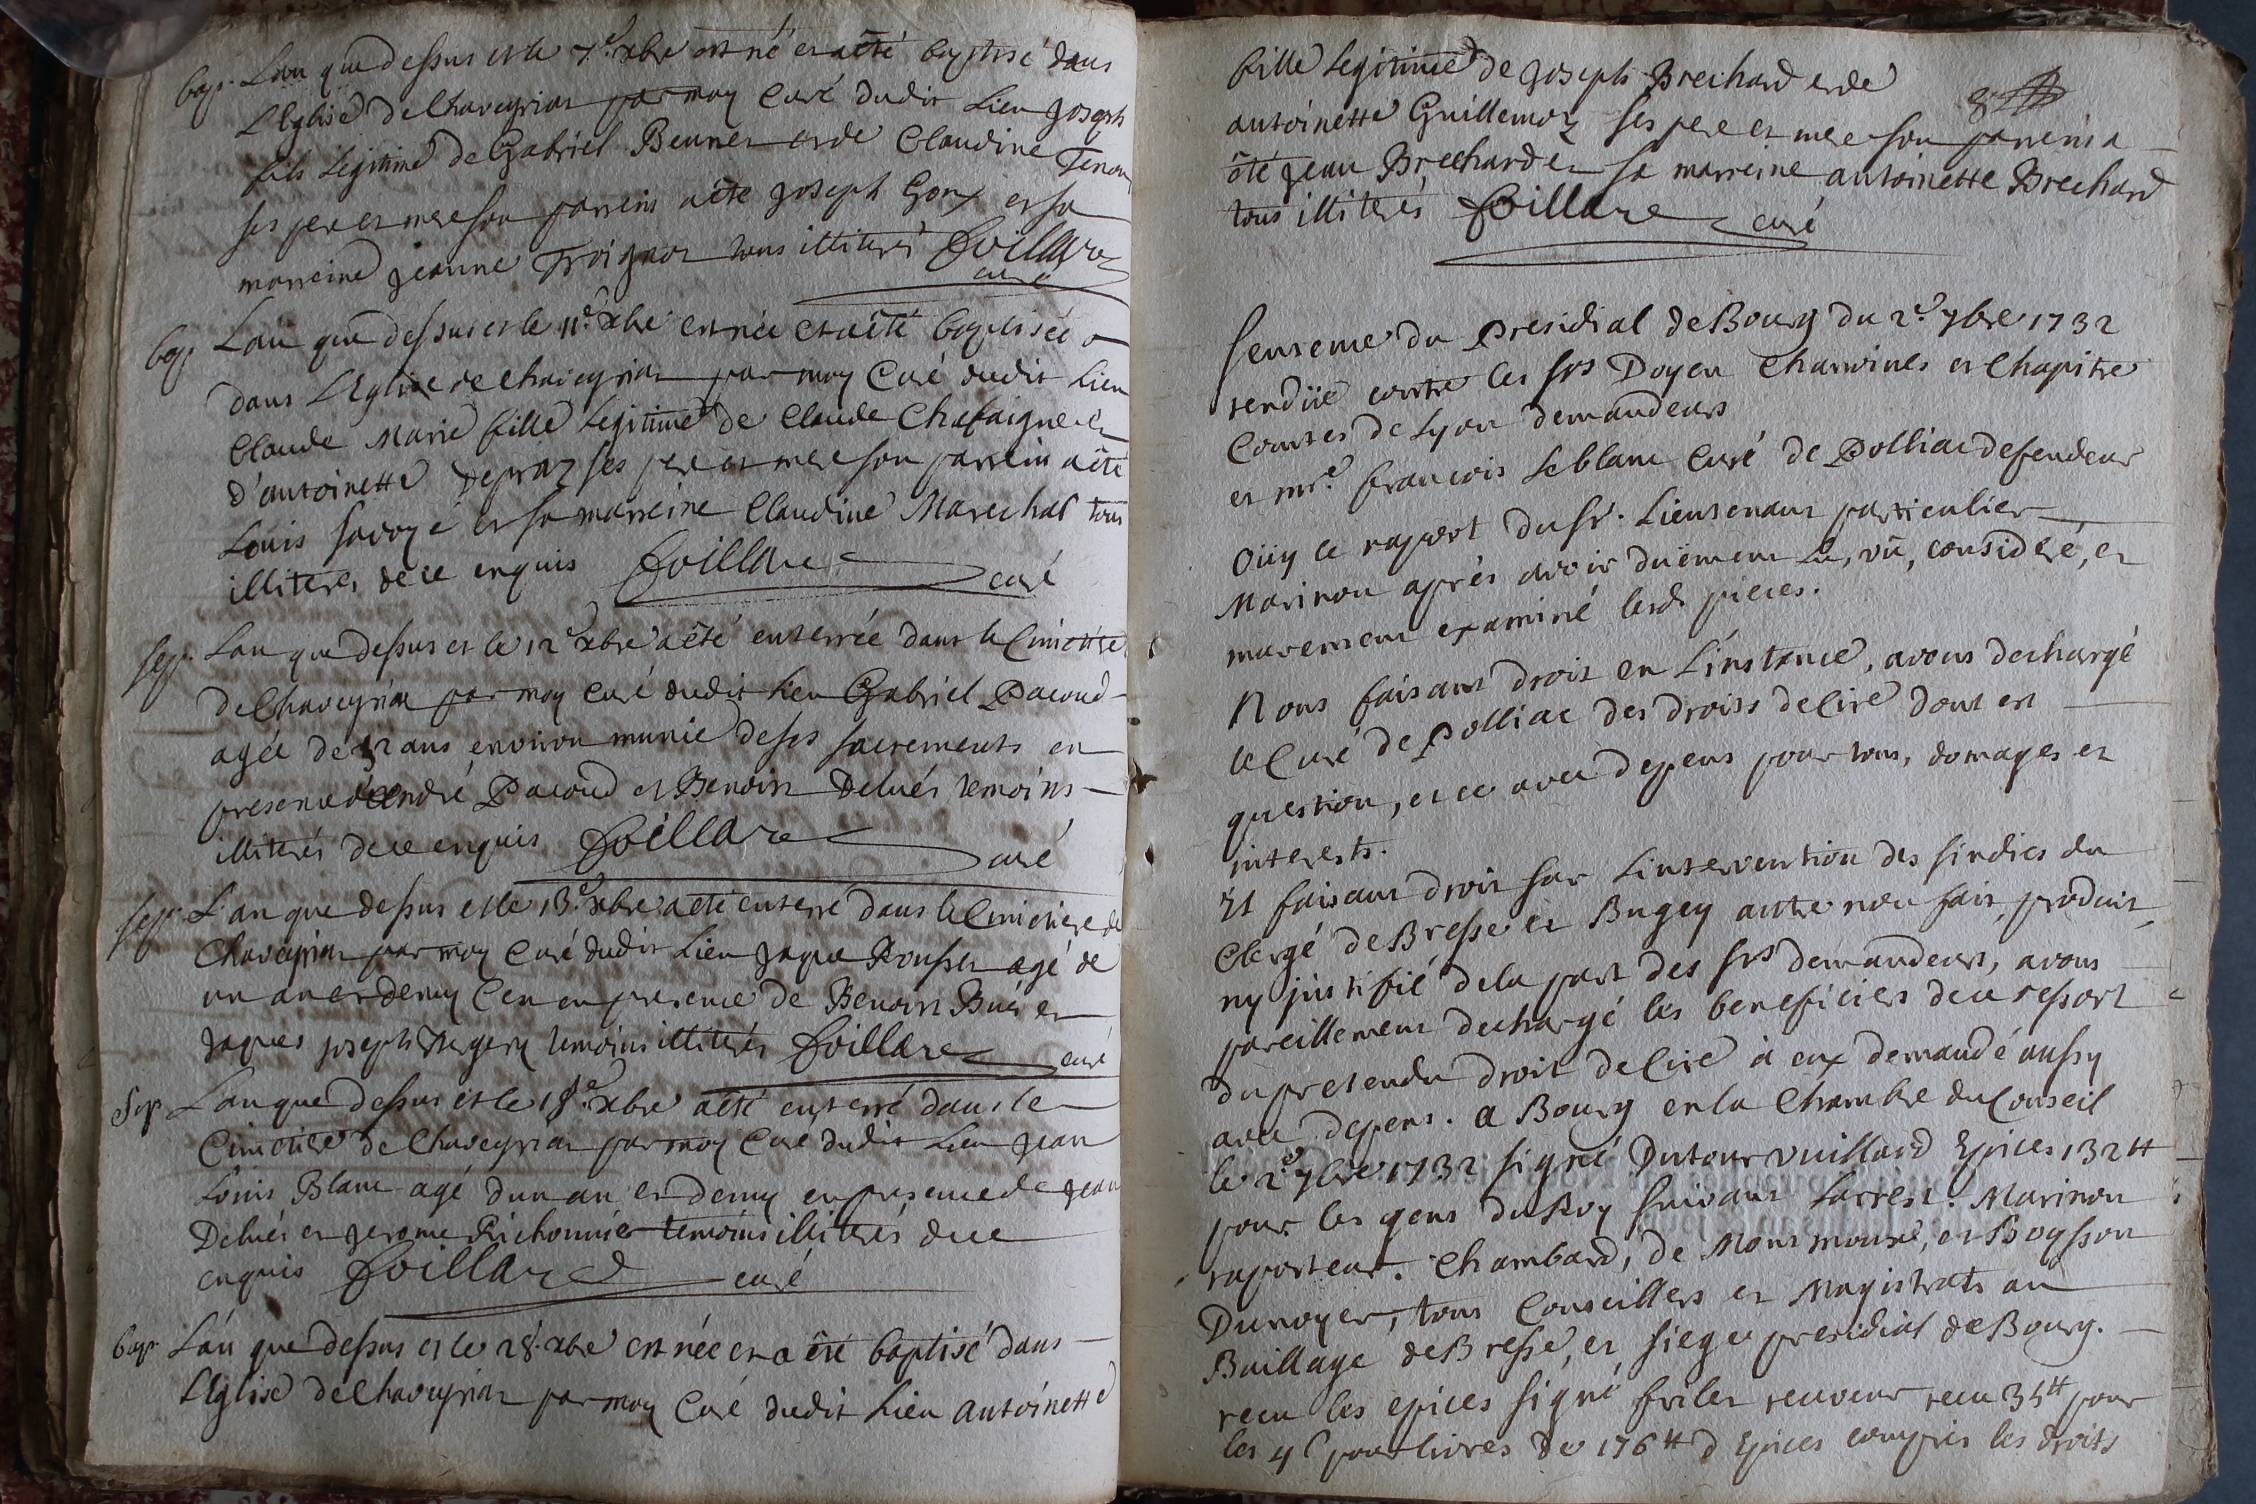 bap. L'an que dessus et le 7e. xbre est né et a êté baptisé dans
L'Eglise de Chaveyriat par moy Curé dudit Lieu Joseph
fils Legitime de Gabriel Beunier et de Claudine
ses pere et mere son parrein a êté Joseph Goux et sa
marreine Jeanne tous illiterés Foillare
curé
bap L'an que dessus et le 11e. xbre est née et a êté baptisée
dans L'Eglise de Chaveyriat par moy Curé dudit Lieu
Claude Marie fille Legitime de Claude Chafaigne et
d'antoinette Depraz ses pere et mere son parrein a êté
Louis Savoye et sa marreine Claudine Marechal tous
illiterés de ce enquis Foillare curé
sep. L'an que dessus et le 12e xbre a êté enterrée dans le Cimetiere
de Chaveyriat par moy curé dudit Lieu Gabriel Pacoud
agée de ans environ munie de ses sacrements en
presence d'andré Pacoud et Benoit Delués temoins
illiterés de ce enquis Foillare curé
sep. L'an que dessus et le 13e. xbre a êté enterré dans le Cimetiere de
Chaveyriat par moy Curé dudit Lieu Jaque Rousset agé de
un an et demy Ce en presence de Benoit Bués et
Jaques joseph temoins illiterés Foillare curé
Sep L'an que dessus et le 18e. xbre a êté enterré dans le
Cimetiere de Chaveyriat par moy Curé dudit Lieu Jean
Louis Blanc agé d'un an et demy en presence de Jean
Delués et Jerome Richonnier temoins illiterés de ce
enquis Foillare curé
bap L'an que dessus et le 28. xbre est née et a êté baptisé dans
L'Eglise de Chaveyriat par moy Curé dudit Lieu antoinette
fille Legitime de Joseph Brechard et de
antoinette Guillemoz ses pere et mere son parrein a
êté Jean Brechard et sa marreine antoinette Brechard
tous illiterés Foillare curé
Sentence du Presidial de Bourg du 2e. 7bre 1732
rendüe contre les Srs Doyen Chanoines et Chapitre
Comtes de Lyon demandeurs
et mre. françois Leblanc Curé de Polliac defendeur
Oüy le raport du Sr. Lieutenant particulier
Marinon après avoir duëment Lu, vû, consideré, et
murement examiné lesd. pieces.
Nous faisant droit en L'instance, avons dechargé
le Curé de Polliac des droits de Cire dont est
question, et ce avec depens pour tous, domages et
interests.
Et faisant droit sur L'intervention des sindics du
Clergé de Bresse et Bugey autre n'en fait, produit,
ny justifié de la part des Srs demandeurs, avons
pareillement dechargé les beneficiers de ce ressort
du pretendu droit de Cire à eux demandé aussy
avec depens. a Bourg en la Chambre du Conseil
le 2e. 7bre 1732 signé Dutour vuillard Epices 132 tt
pour les gens du Roy suivant L'arrest. Marinon
raporteur. Chambard, de Monimoune, et Boysson
Dunoyer, tous Conseillers et Magistrats au
Baillage de Bresse, et siege presidial de Bourg.
receu les epices signé receveur receu 35 tt pour
les 4 s pour livres de 176 tt d'Epices compris les droits